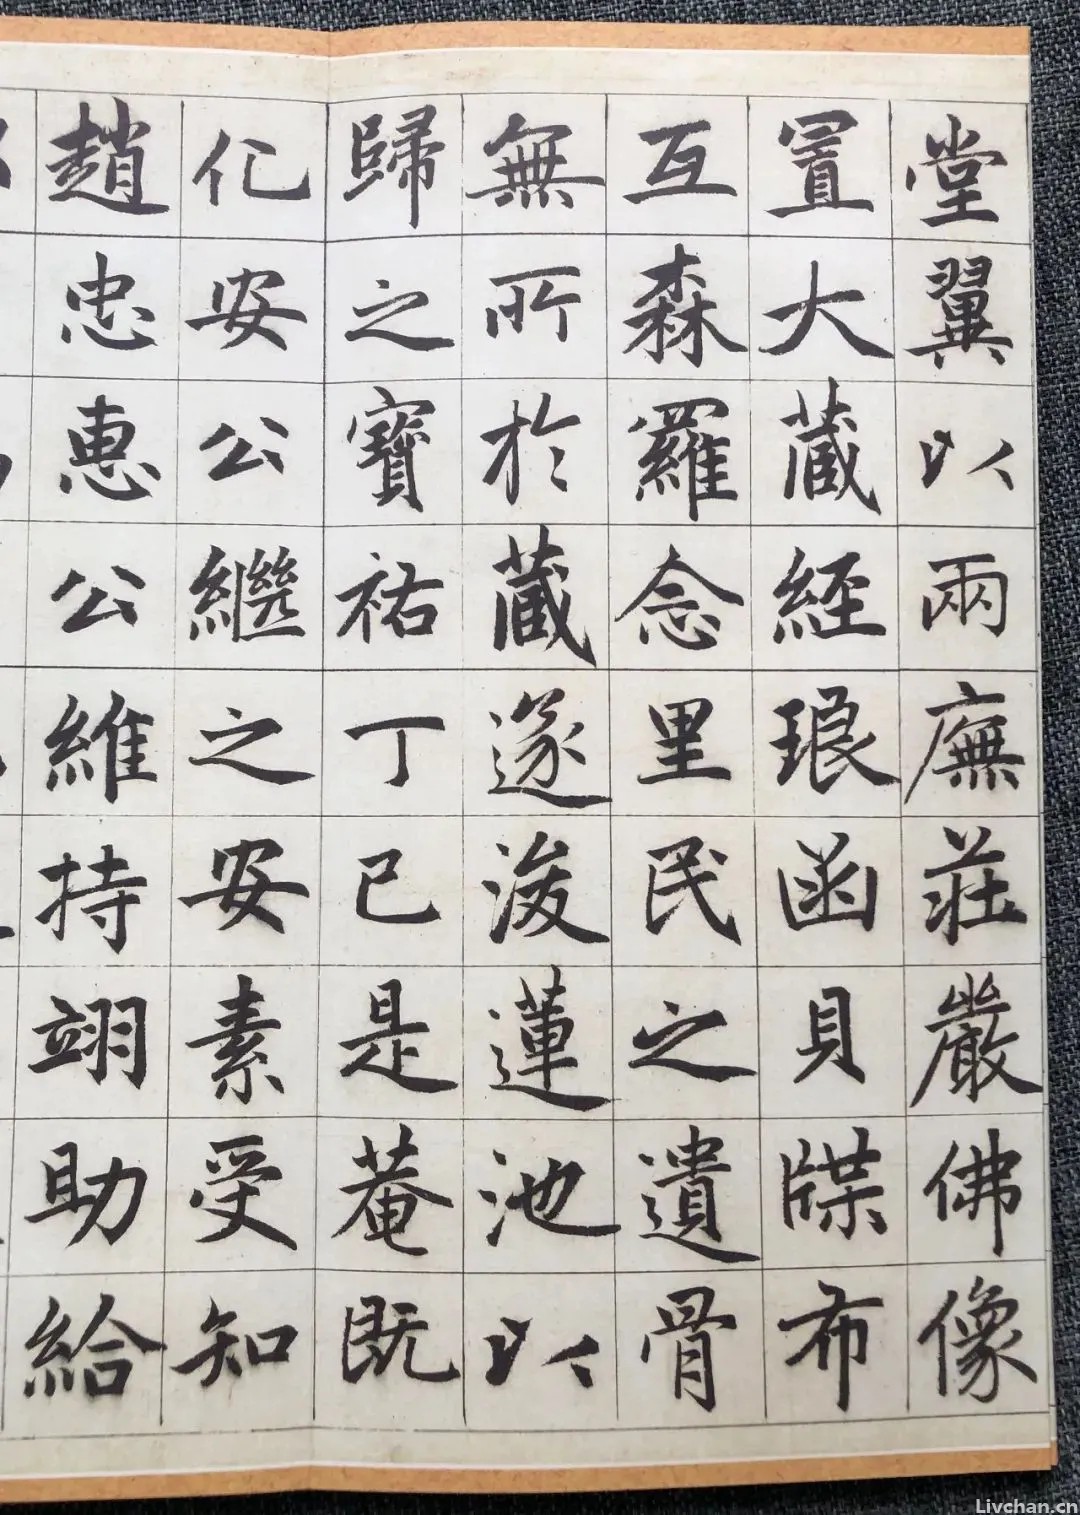 堂翼以兩廡莊嚴佛像
置大蔵經琅函貝牒布
互森羅念里民之遺骨
無所於蔵遂浚蓮池以
歸之寶祐丁巳是菴既
化安公繼之安素受知
趙忠惠公維持翊助給
Livchan.cn